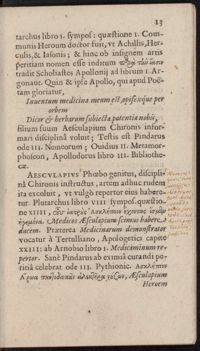 13
tarchus libro I. sympos: quæstione I. Com-
munis Heroum doctor fuit, vt Achillis, Her-
culis, & Iasonis; & hinc ob insignem artis
peritiam nomen esse inditum
tradit Scholiastes Apollonij ad librum I Ar-
gonaut. Quin & ipse Apollo, qui apud Poë-
tam gloriatur,
Inuentum medicina meum est, opiferque per
orbem
Dicor & herbarum subiecta potentia nobis,
filium suum Aesculapium Chironis infor-
mari disciplinâ voluit; Testis est Pindarus
ode III. Nontorum; Ouidius II. Metamor-
phoseon, Apollodorus libro III. Bibliothe-
cæ.
AESCVLAPIVS Phœbo genitus, discipli-
nâ Chironis instructus, artem adhuc rudem
ita excoluit, vt vulgò repertor eius habere-
tur. Plutarchus libro VIII sympos. quæstio-
ne XIIII,
Medicos Æsculapium scimus habere
ducem. Præterea Medicinarum demonstrator
vocatur à Tertulliano, Apologetici capite
XXIII: ab Arnobio libro I. Medicaminum re-
pertor. Sanè Pindarus ab eximiâ curandi pe-
ritiâ celebrat ode III. Pythionic.
Æsculapium
Heroem